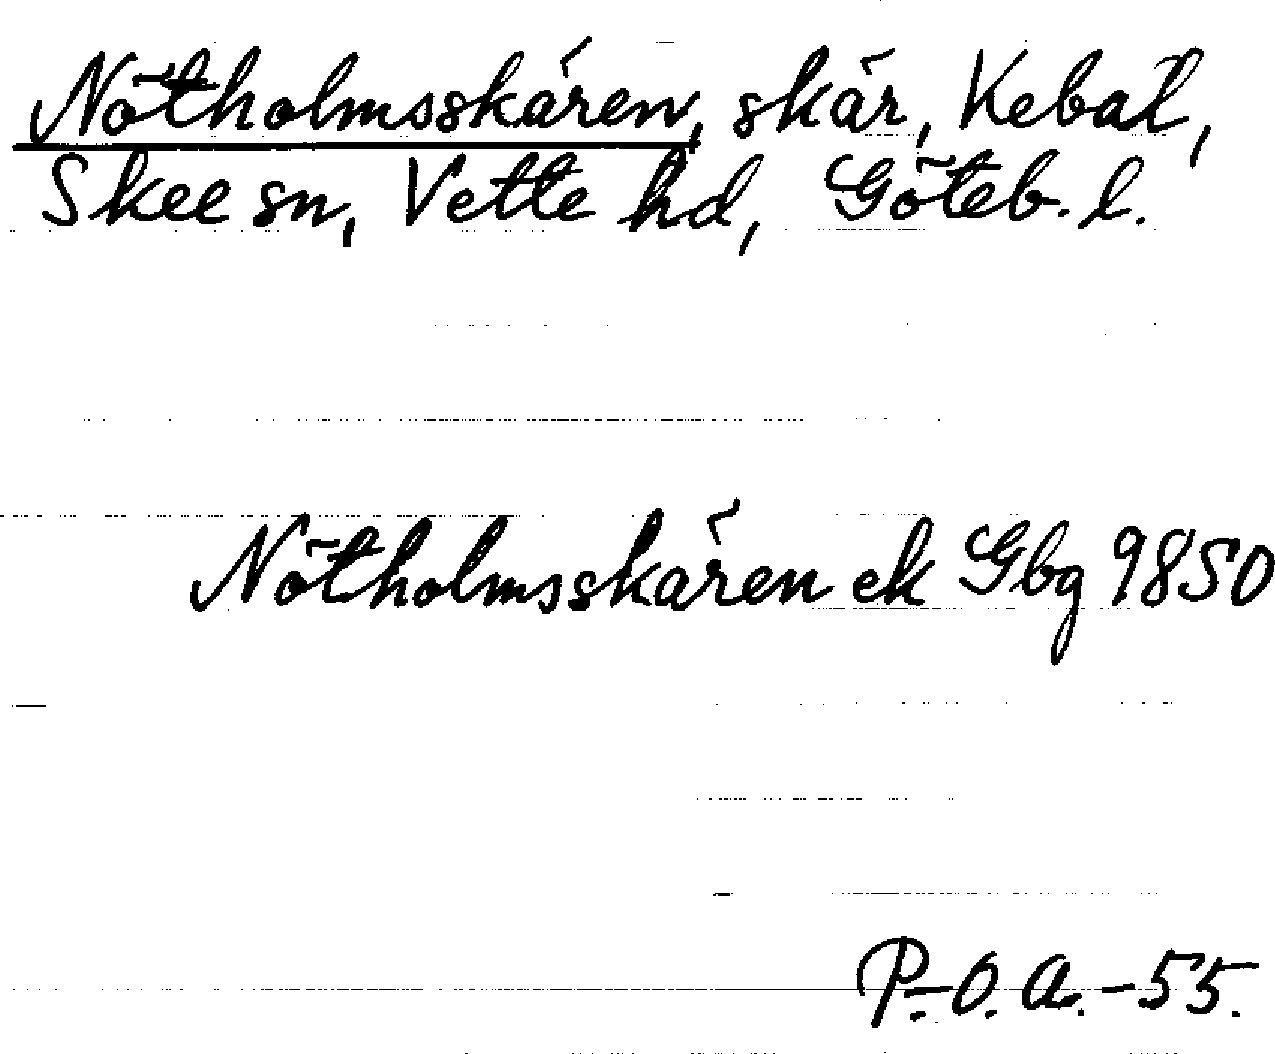 Nötholmsskären, skär, Kebal,
Skee sn, Vette hd, Göteb. l.
Nötholmsskären ek Gbg 9850
P.-O. A. -55.